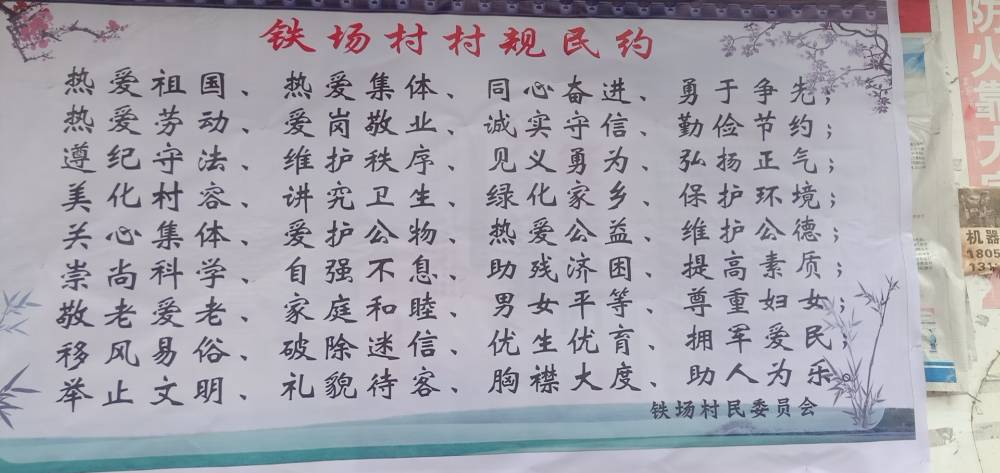 铁场村村规民约
热爱祖国、热爱集体、同心奋进、勇于争先；
热爱劳动、爱岗敬业、诚实守信、勤俭节约；
遵纪守法、维护秩序、见义勇为、弘扬正气；
美化村容、讲究卫生、绿化家乡、保护环境；
关心集体、爱护公物、热爱公益、维护公德；
崇尚科学、自强不息、助残济困、提高素质；
敬老爱老、家庭和睦、男女平等、尊重妇女；
移风易俗、破除迷信、优生优育、拥军爱民；
举止文明、礼貌待客、胸襟大度、助人为乐。
铁场村民委员会
防火靠大
机器